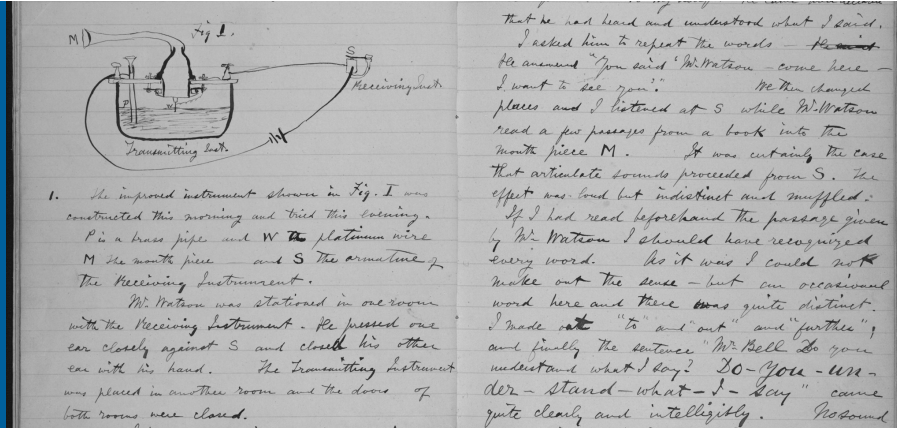 Fig 1.
M
S
Receiving Inst.
P
W
Transmitting Inst.
1. The improved instrument shown in Fig. I was
constructed this morning and tried this evening.
P is a brass pipe and W the platinum wire
M the mouth piece and S the armature of
the Receiving Instrument.
Mr. Watson was stationed in one room
with the Receiving Instrument. He pressed one
ear closely against S and closed his other
ear with his hand. The Transmitting Instrument
was placed in another room and the doors of
both rooms were closed.
that he had heard and understood what I said.
I asked him to repeat the words — He said
He answered "You said "Mr. Watson — come here —
I want to see you"." We then changed
places and I listened at S while Mr. Watson
read a few passages from a book into the
mouth piece M. It was certainly the case
that articulate sounds proceeded from S. The
effect was loud but indistinct and muffled.
If I had read beforehand the passage given
by Mr. Watson I should have recognized
every word. As it was I could not
make out the sense — but an occasional
word here and there was quite distinct.
I made out "to" and "out" and "further";
and finally the sentence "Mr. Bell Do you
understand what I say? Do-you-un-
der-stand-what-I-say" came
quite clearly and intelligibly. No sound